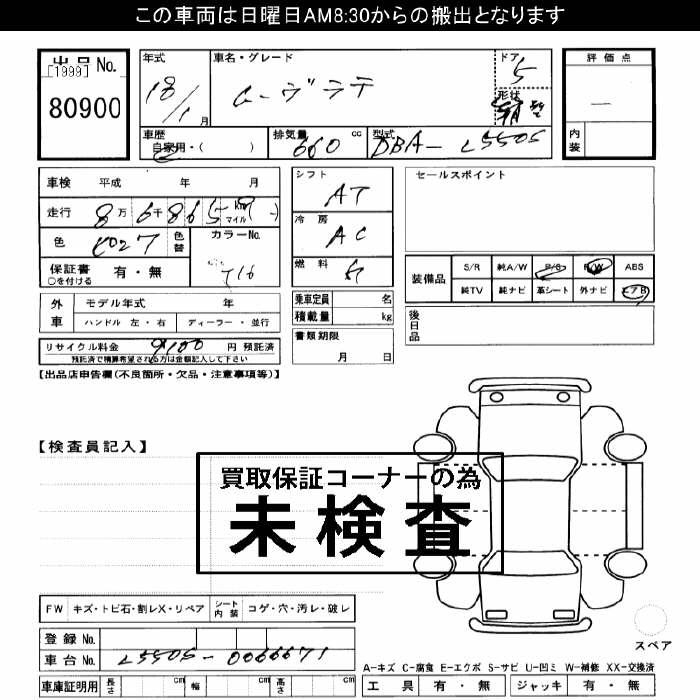 この車両は日曜日AM8:30からの搬出となります
出品 No.
[1999]
80900
年式
18/1 月
車名・グレード
ムーヴラテ
ドア
5
形状
評価点
—
内装
車歴
自家用・( )
排気量
660 cc
型式
DBA- L550S
車検 平成 年 月
走行 8万 6千 865 km マイル
色
色替
カラーNo.
T16
保証書 有・無
○を付ける
シフト
AT
冷房
AC
燃料
セールスポイント
装備品
S/R 純A/W P/S P/W ABS
純TV 純ナビ 革シート 外ナビ エアB
外車
モデル年式 年
ハンドル 左・右 ディーラー・並行
乗車定員 名
積載量 kg
後日品
リサイクル料金 9100 円 預託済
預託済で精算希望される方は金額記入して下さい
書類期限
月 日
【出品店申告欄(不良箇所・欠品・注意事項等)】
【検査員記入】
買取保証コーナーの為
未検査
FW キズ・トビ石・割レX・リペア シート内装 コゲ・穴・汚レ・破レ
登録 No.
車台 No. L550S-0066671
車庫証明用 長さ cm 幅 cm 高さ cm
スペア
A-キズ C-腐食 E-エクボ S-サビ U-凹ミ W-補修 XX-交換済
工具 有・無 ジャッキ 有・無